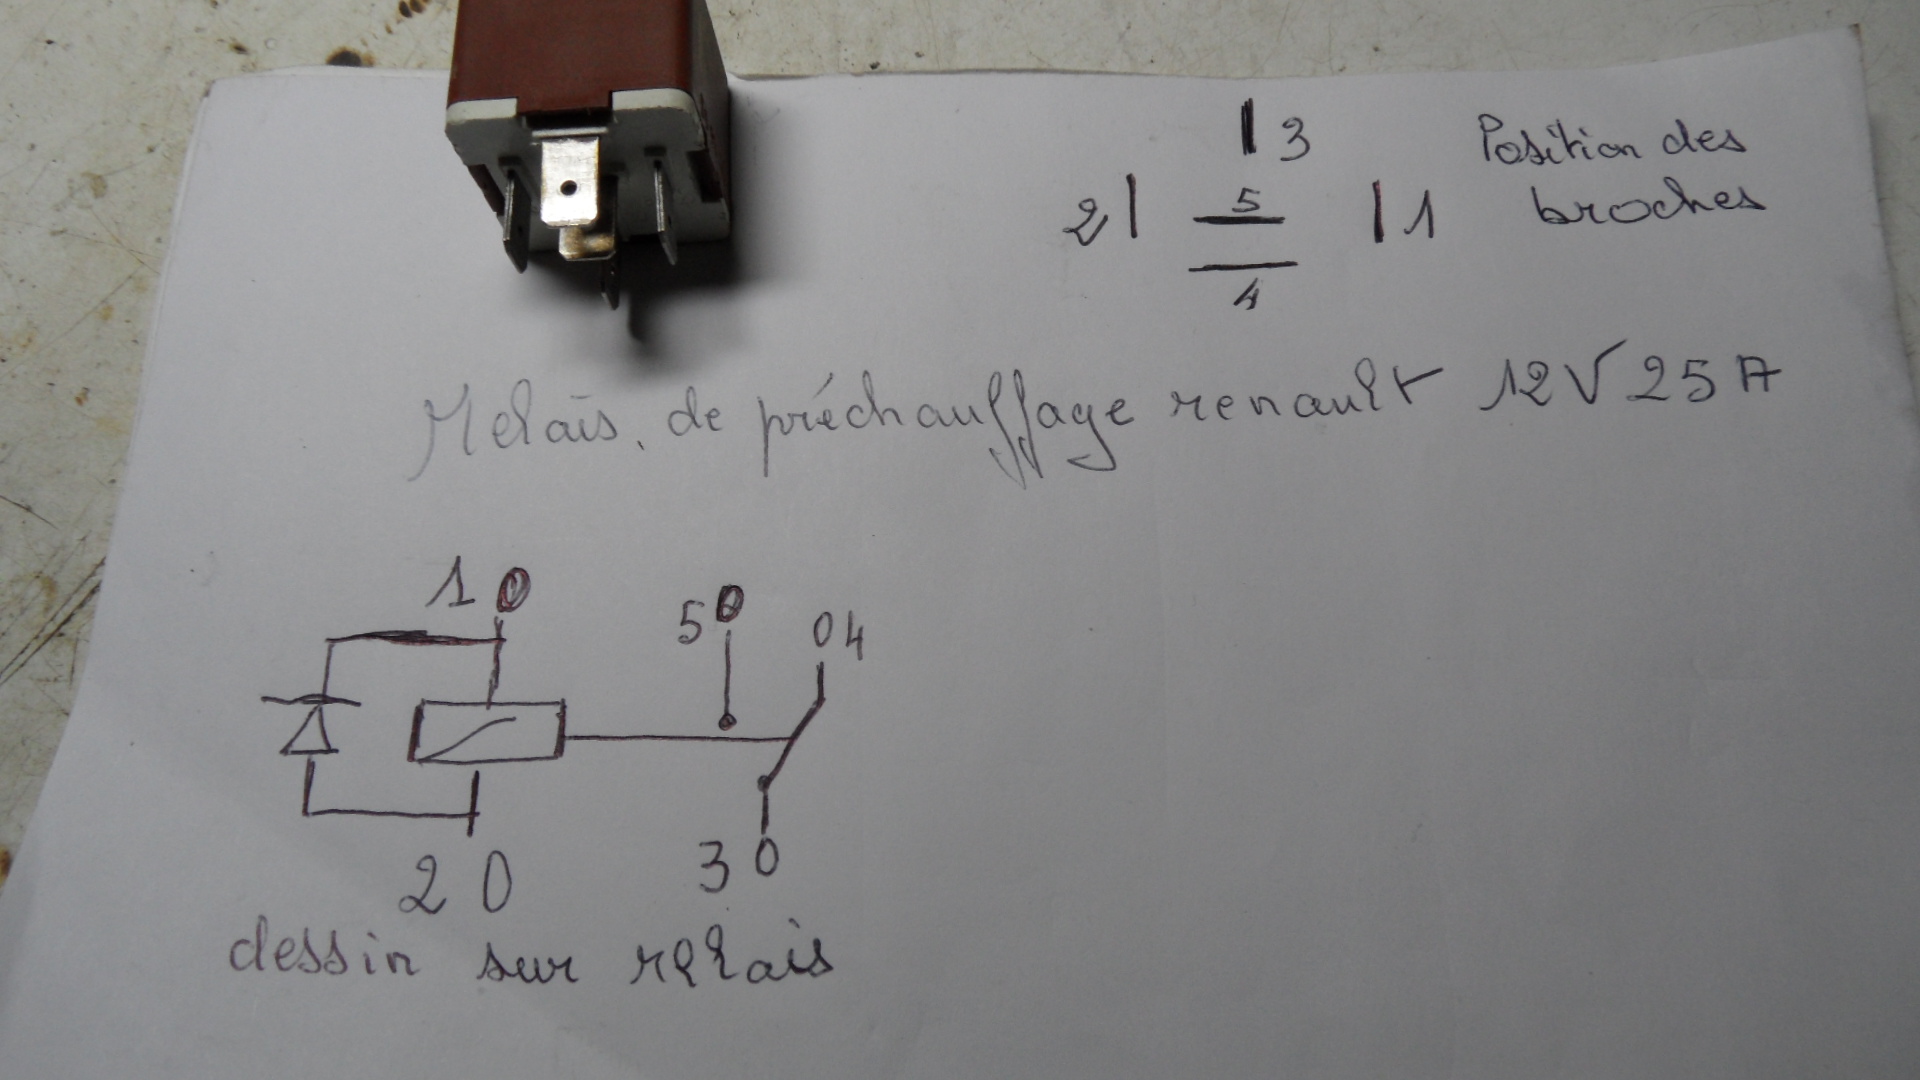 3
Position des
2 5 1 broches
4
Relais. de préchauffage renault 12V 25A
1 0 5 0 0 4
2 0 3 0
dessin sur relais